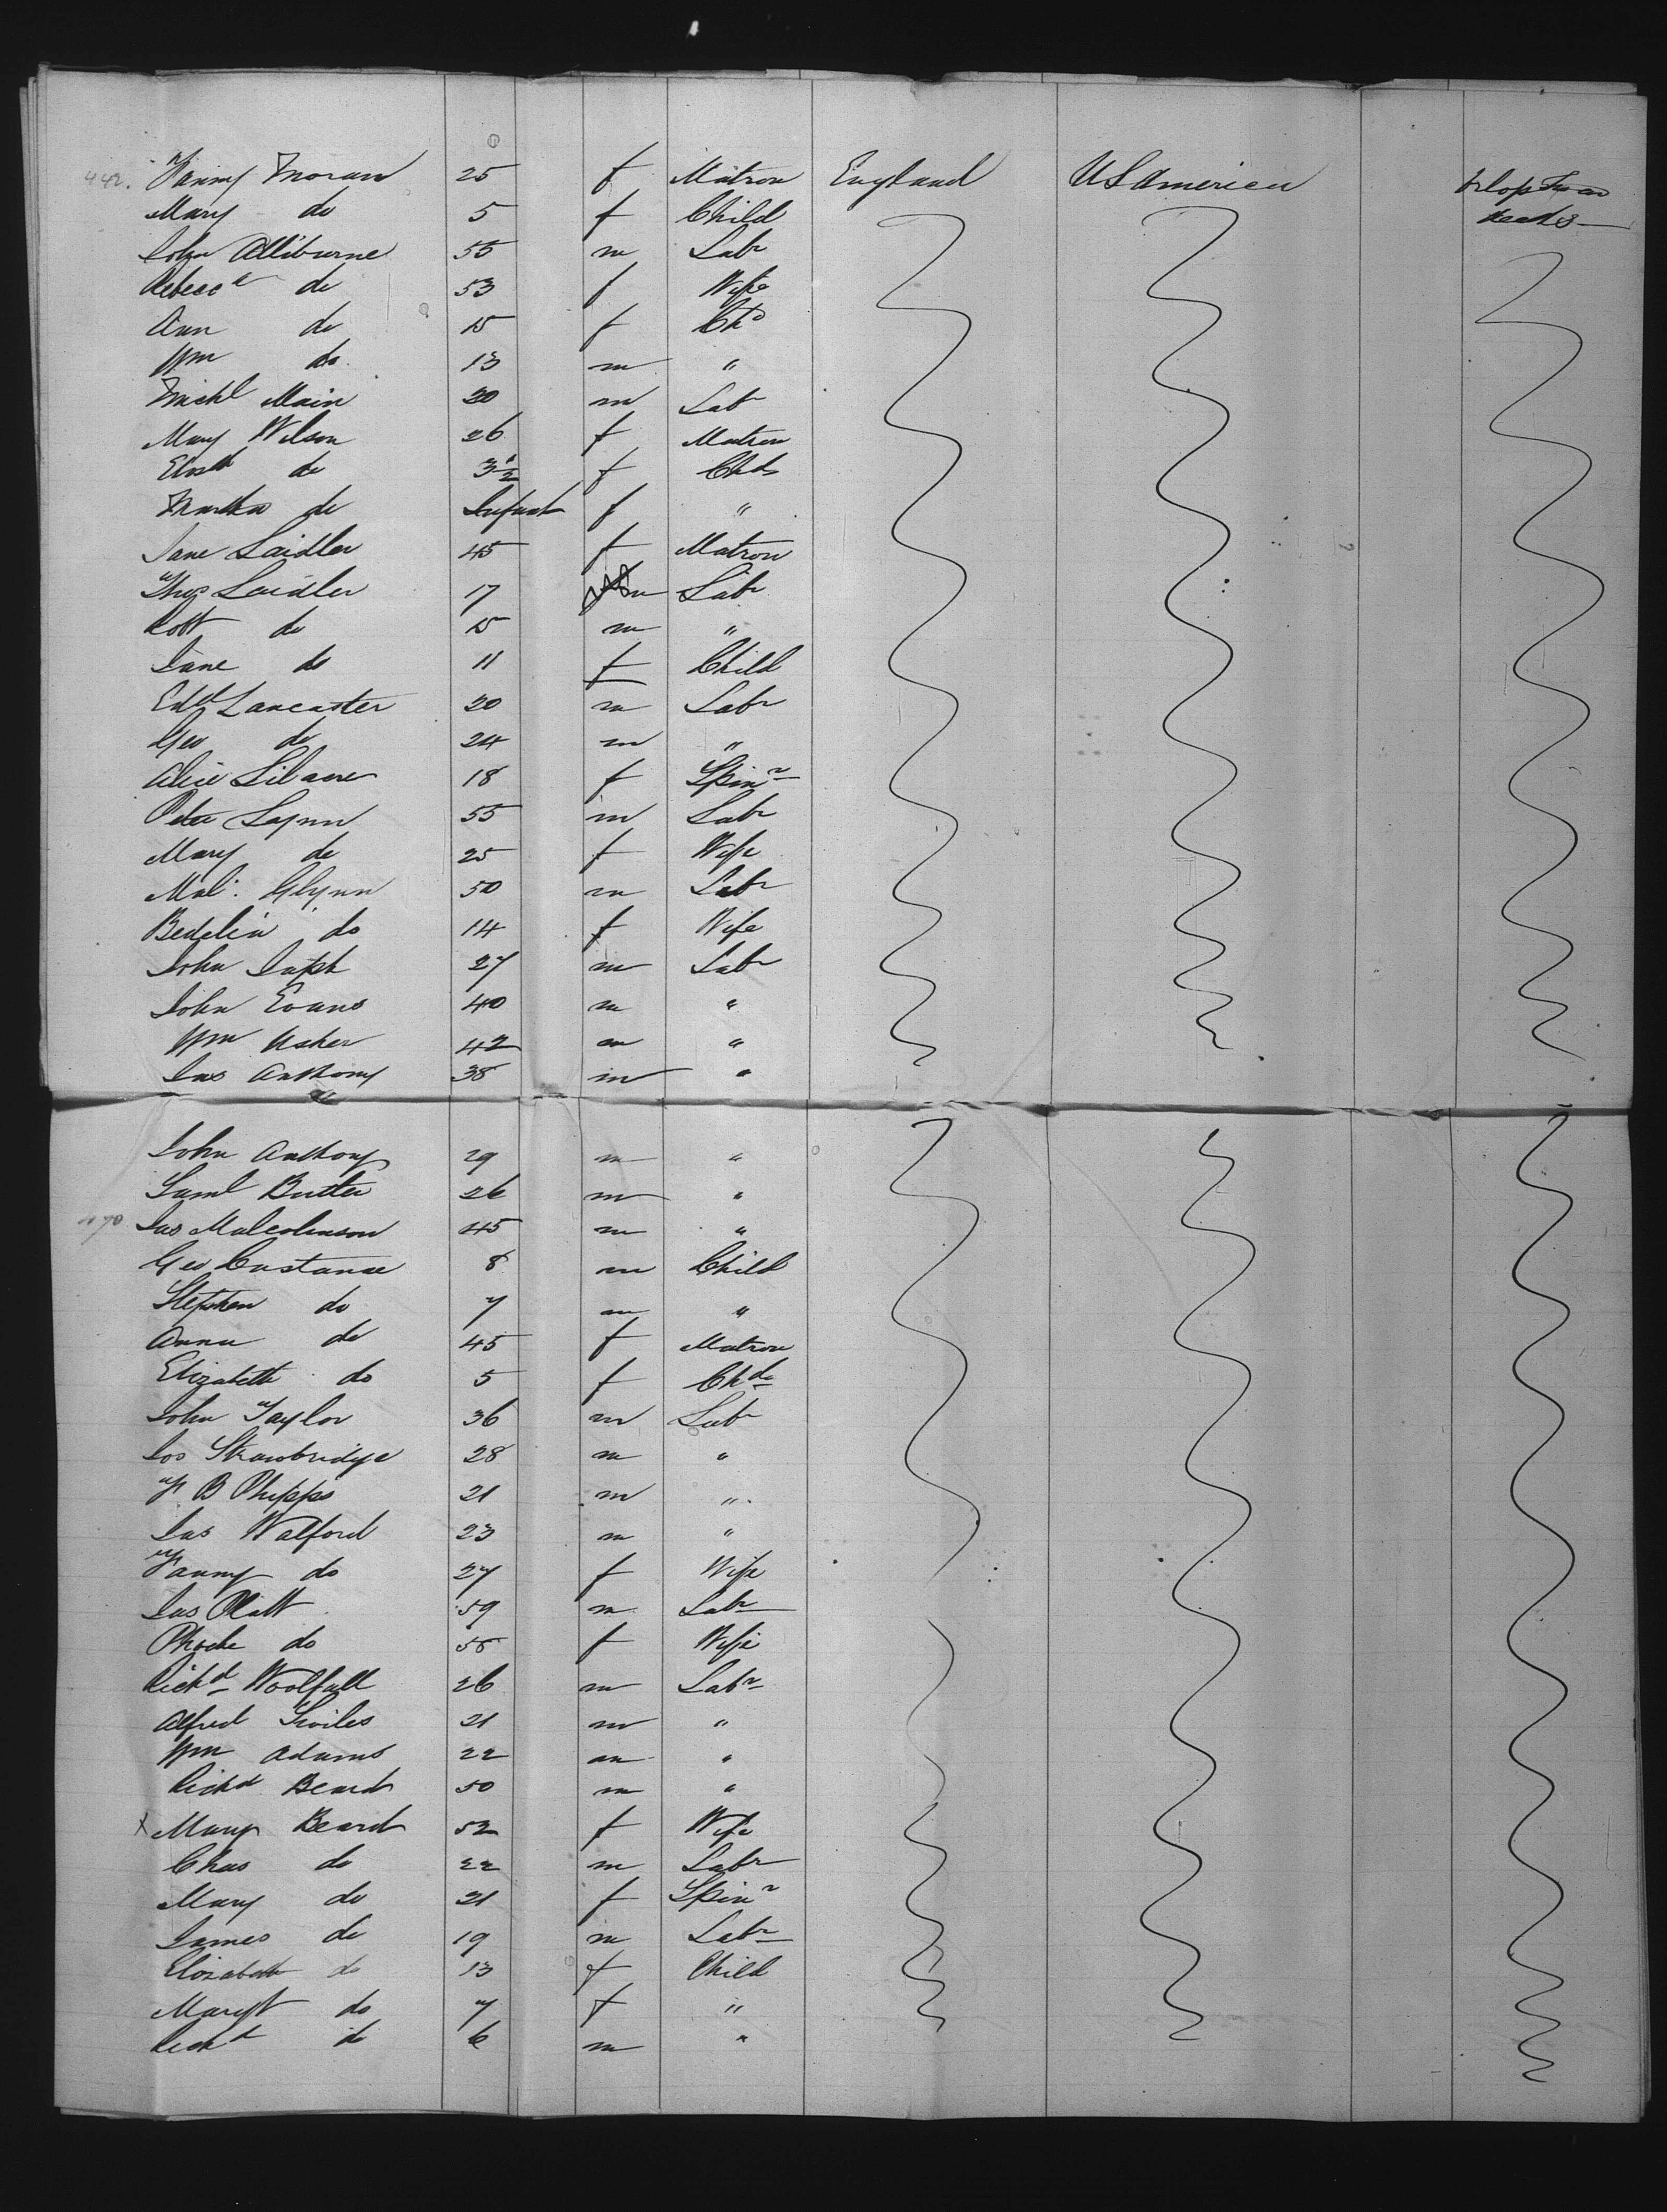 442. Fanny Moran 25 f Matron England US America
Mary do 5 f Child decks
John Alliburne 55 m Labr
Rebecca do 53 f Wife
Ann do 15 f Chd
Wm do 13 m "
Michl Main 20 m Labr
Mary Wilson 26 f Matron
Elizth do 3½ f Chds
Martha do Infant f "
Jane Laidler 45 f Matron
Thos Laidler 17 m Labr
Robt do 15 m "
Jane do 11 f Child
Edwd Lancaster 20 m Labr
Geo do 24 m "
Alice 18 f Spinr
Peter Lynn 55 m Labr
Mary do 25 f Wife
Mal. Glynn 50 m Labr
Bedelia do 14 f Wife
John 27 m Labr
John Evans 40 m "
Wm Usher 42 m "
Jas Anthony 38 m "
John Anthony 29 m "
Saml Butler 26 m "
Jas Malcolmson 45 m "
Geo Custance 8 m Child
Stephen do 7 m "
Anna do 45 f Matron
Elizabeth do 5 f Chd
John Taylor 36 m Labr
Jos Strawbridge 28 m "
F B Phipps 21 m "
Jas Walford 23 m "
Fanny do 27 f Wife
Jas Platt 59 m Labr
Phoebe do 58 f Wife
Richd Woolfall 26 m Labr
Alfred 21 m "
Wm Adams 22 m "
Richd Beard 50 m "
x Mary Beard 52 f Wife
Chas do 22 m Labr
Mary do 21 f Spinr
James do 19 m Labr
Elizabeth do 13 f Child
Margt do 7 f "
Richd do 6 m "